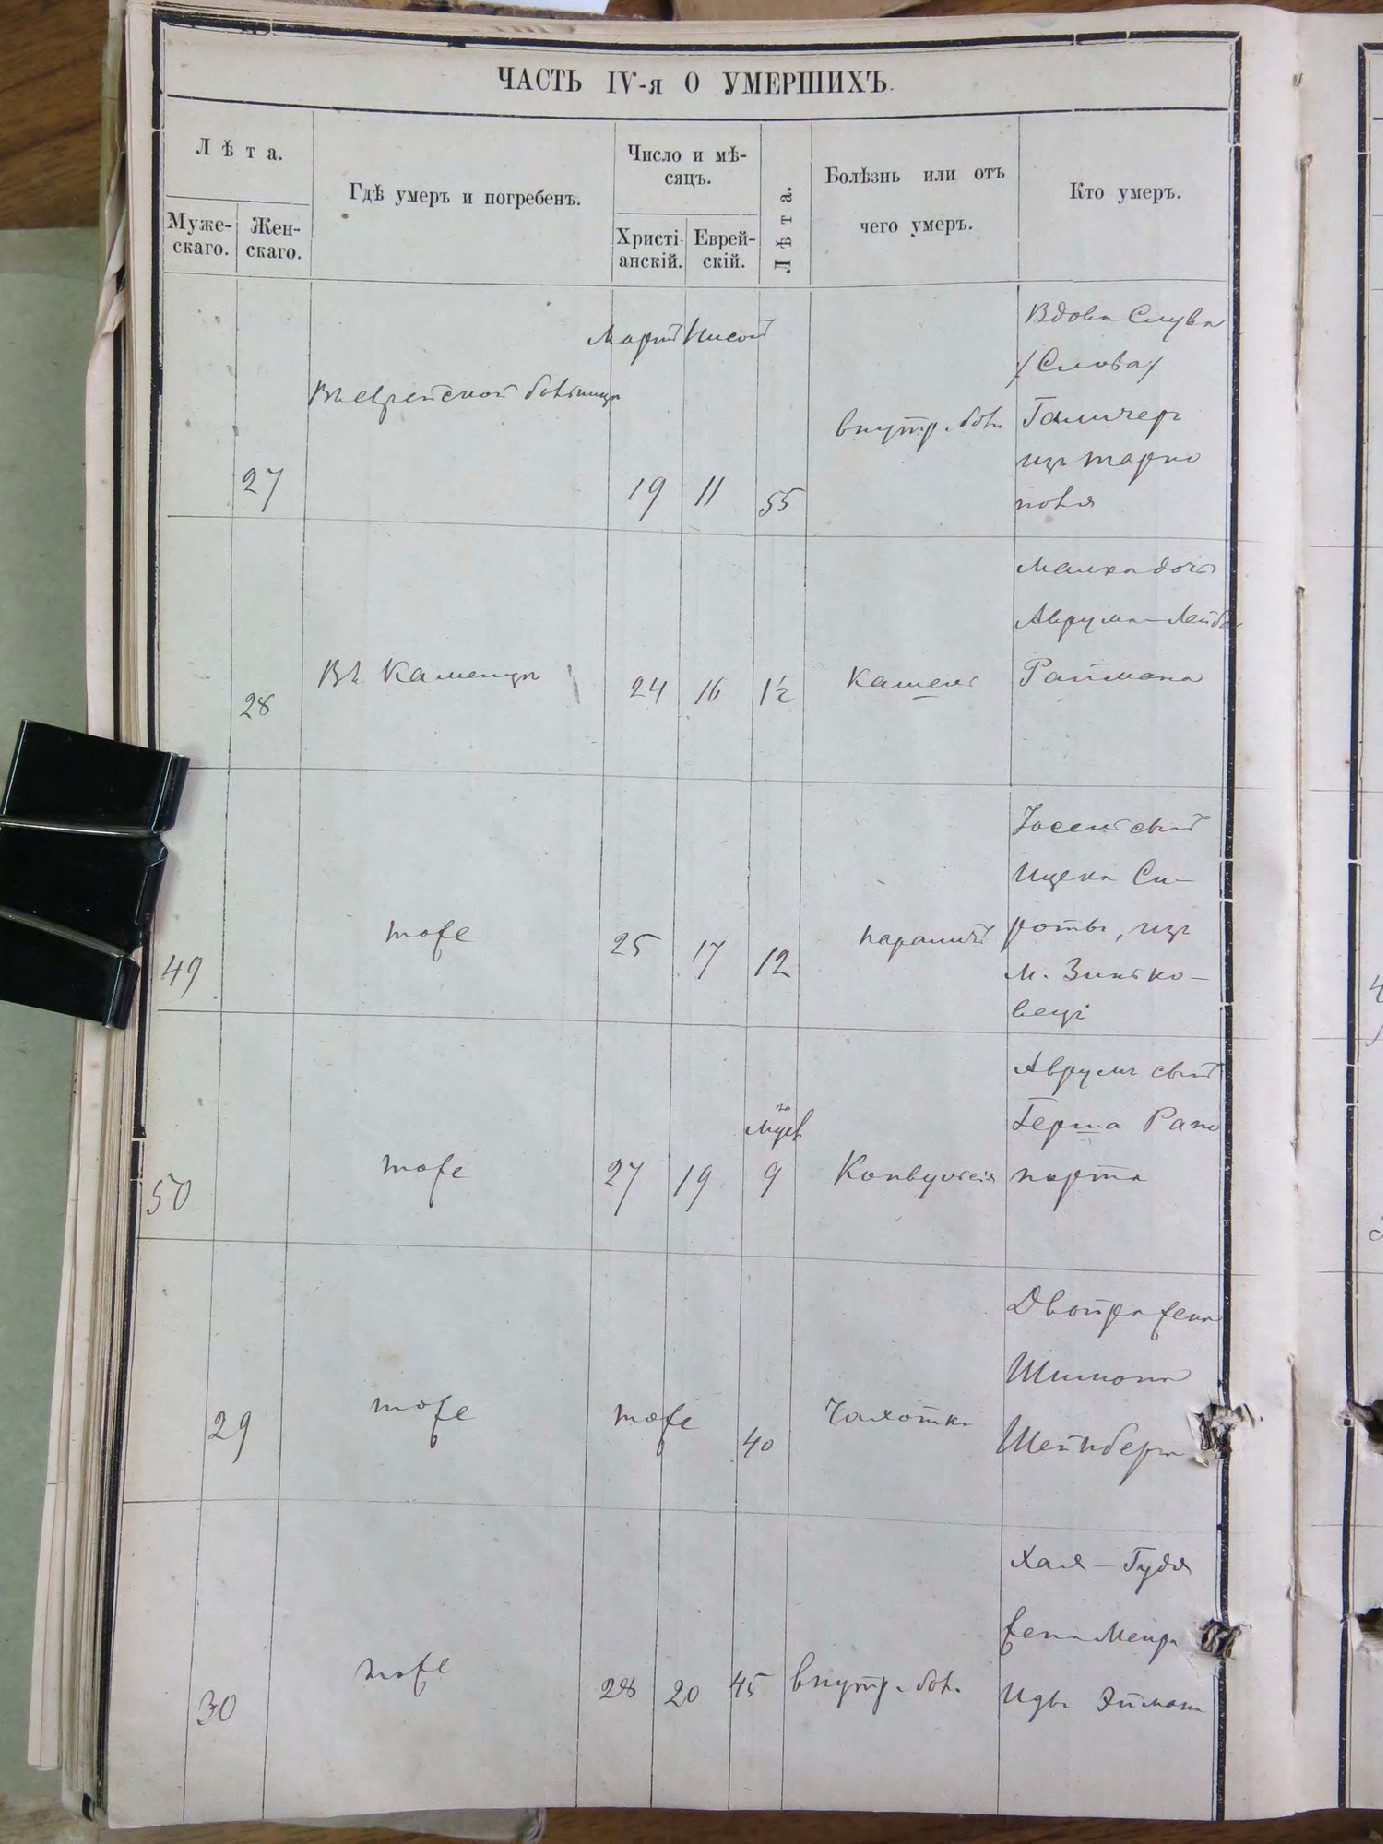 ЧАСТЬ IV-я О УМЕРШИХЪ.
Лѣта.
Муже-
скаго.
Жен-
скаго.
Гдѣ умеръ и погребенъ.
Число и мѣ-
сяцъ.
Христі-
анскій.
Еврей-
скій.
Лѣта.
Болѣзнь или отъ
чего умеръ.
Кто умеръ.
27
Въ еврейской больницѣ
Мартъ
19
11
55
внутр. бол.
Вдова
/Слова/
из Тарно
поля
28
Въ Каменцѣ
24
16
1½
Кашель
Малка дочь
Аврума-Лейба
Раймана
49
тоже
25
17
12
параличъ
Іосель сынъ
Ицека Си-
роты, изъ
м. Зинько-
вецъ
50
тоже
27
19
9
Конвульсія
Аврумъ сынъ
Герша Рапо
порта
29
тоже
тоже
40
Чахотка
Двойра жена
Шимона
Шейнберга
30
тоже
28
20
45
внутр. бол.
Хая-Гудя
жена Меира